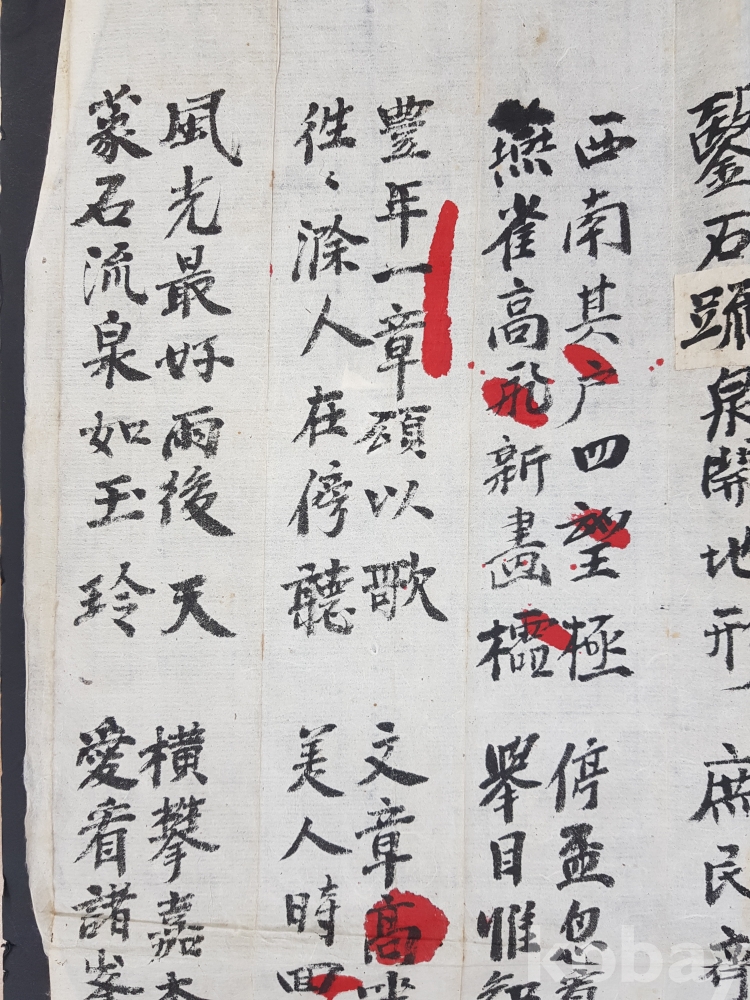 鑿石踈泉開地形 庶民齊
西南其户四望極 停盃忽
燕雀高飛新畵櫺 舉目惟知
豊年一章頌以歌 文章高
徃〻滁人在傍聽 美人時
風光最好雨後天 橫攀嘉木
蒙石流泉如玉玲 愛看諸峯
koba